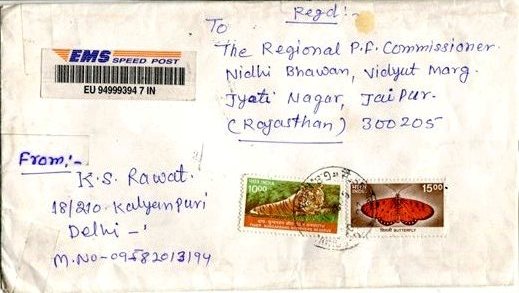 Regd:-
To
The Regional P.F. Commissioner.
Nidhi Bhawan, Vidyut Marg.
Jyati Nagar, Jaipur.
(Rajasthan) 300205
EMS SPEED POST
EU 94999394 7 IN
From:-
K.S. Rawat.
18/210 - Kalyanpuri
Delhi -
M.No-09582013194
भारत INDIA
10.00
भारत INDIA
15.00
तितली BUTTERFLY